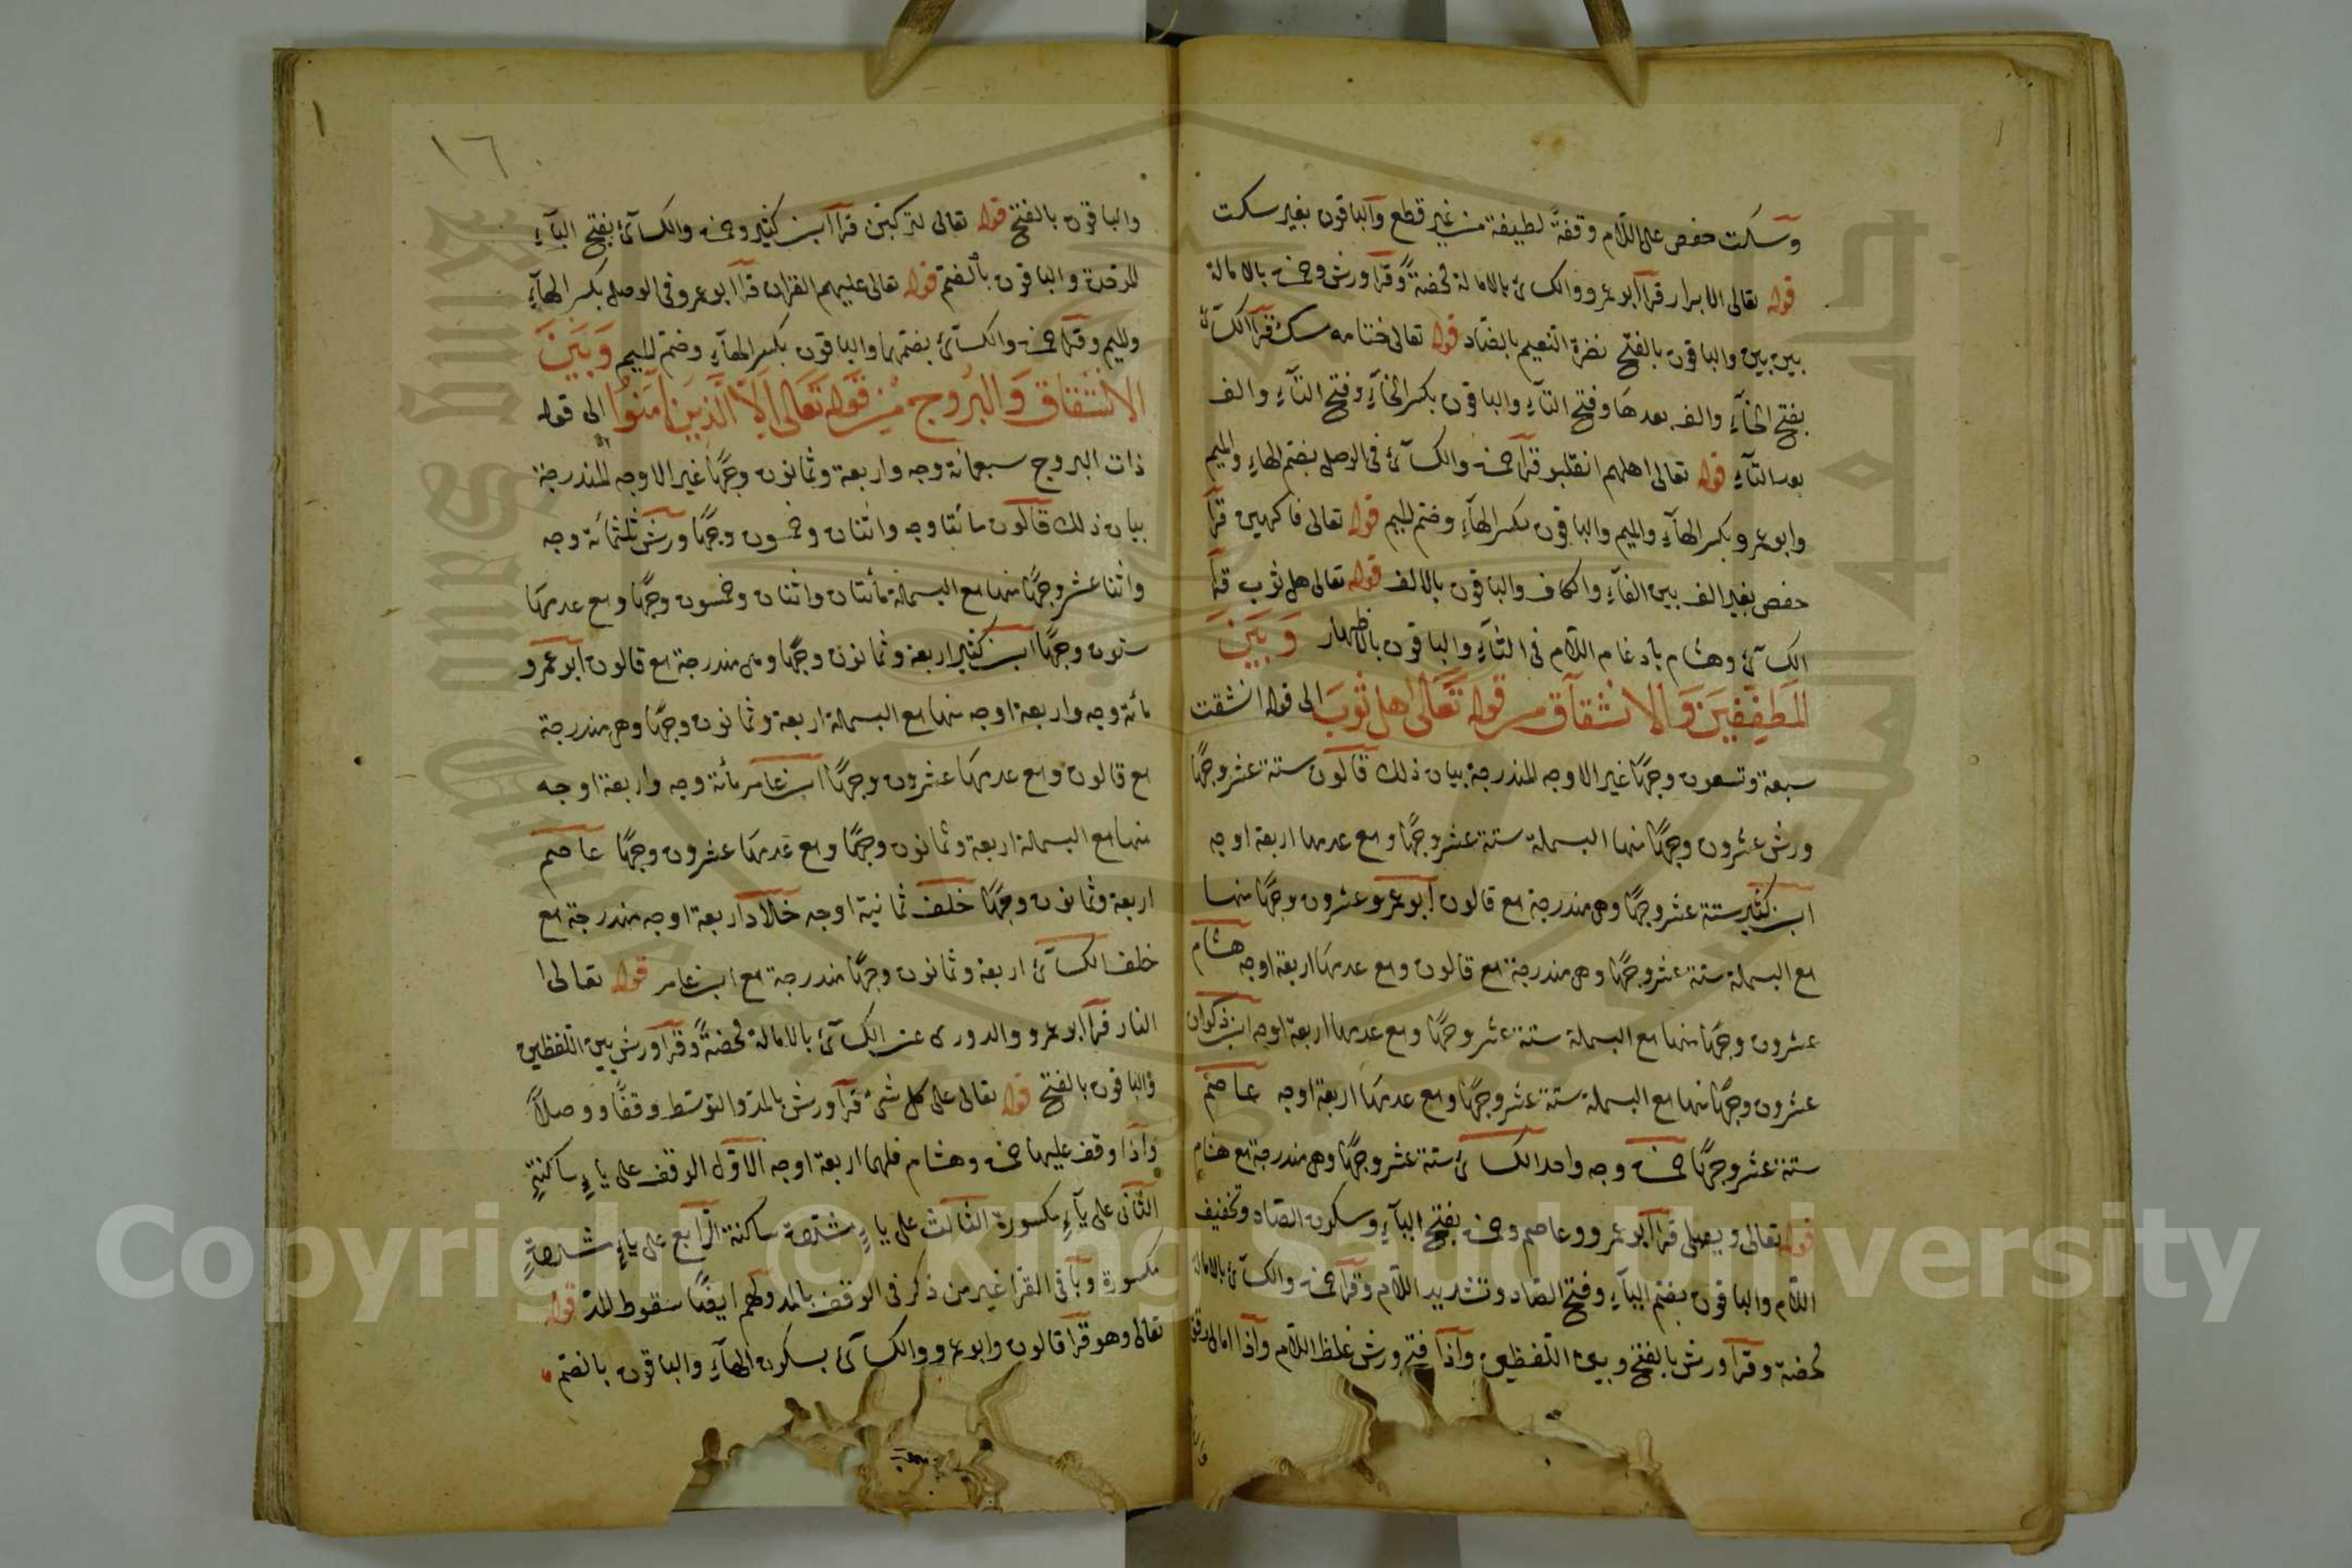 وسكت حفص على اللام وقفةً لطيفة من غير قطع والباقون بغير سكت
قوله تعالى الابرار قرأ أبو عمرو والكسائي بالامالة محضةً وقرأ ورش وحمزة بالامالة
بين بين والباقون بالفتح نضرة النعيم بالضاد قوله تعالى ختامه مسك قرأ الكسائي
بفتح الخاءِ والف بعدها وفتح التاءِ والباقون بكسر الخاءِ وفتح التاءِ والف
بعد التاءِ قوله تعالى اهلهم انقلبو قرأ حمزة والكسائي في الوصل بضم الهاءِ والميم
وابو عمرو بكسر الهاءِ والميم والباقون بكسر الهاءِ وضم الميم قوله تعالى فاكهين قرأ
حفص بغير الف بين الفاءِ والكاف والباقون بالالف قوله تعالى هل ثوب قرأ
الكسائي وهشام بادغام اللام في الثاءِ والباقون بالاظهار وَبَيْنَ
المطففين والانشقاق من قوله تعالى هل ثوب الى قوله انشقت
سبعة وتسعون وجهًا غير الاوجه المندرجة بيان ذلك قالون ستة عشر وجهًا
ورش عشرون وجهًا منها البسملة ستة عشر وجهًا ومع عدمها اربعة اوجه
ابن كثير ستة عشر وجهًا وهى مندرجة مع قالون أبو عمرو عشرون وجهًا منها
مع البسملة ستة عشر وجهًا وهى مندرجة مع قالون ومع عدمها اربعة اوجه هشام
عشرون وجهًا منها مع البسملة ستة عشر وجهًا ومع عدمها اربعة اوجه ابن ذكوان
عشرون وجهًا منها مع البسملة ستة عشر وجهًا ومع عدمها اربعة اوجه عاصم
ستة عشر وجهًا حمزة وجه واحد الكسائي ستة عشر وجهًا وهى مندرجة مع هشام
قوله تعالى ويصلى قرأ أبو عمرو وعاصم وحمزة بفتح الياءِ وسكون الصاد وتخفيف
اللام والباقون بضم الياءِ وفتح الصاد وتشديد اللام وقرأ حمزة والكسائي بالامالة
محضة وقرأ ورش بالفتح وبين اللفظين وإذا فتح ورش غلظ اللام وإذا امال رقق
١٦
والباقون بالفتح قوله تعالى لتركبن قرأ ابن كثير وحمزة والكسائي بفتح الباءِ
الموحدة والباقون بالضم قوله تعالى عليهم القران قرأ ابو عمرو في الوصل بكسر الهاءِ
والميم وقرأ حمزة والكسائي بضمهما والباقون بكسر الهاءِ وضم الميم وَبَيْنَ
الانشقاق والبروج من قوله تعالى الا الذين آمنوا الى قوله
ذات البروج سبعمائة وجه واربعة وثمانون وجهًا غير الاوجه المندرجة
بيان ذلك قالون مائتا وجه واثنان وخمسون وجهًا ورش ثلثمائة وجه
واثنا عشر وجهًا منها مع البسملة مائتان واثنان وخمسون وجهًا ومع عدمها
ستون وجهًا ابن كثير اربعة وثمانون وجهًا وهى مندرجة مع قالون أبو عمرو
مائة وجه واربعة اوجه منها مع البسملة اربعة وثمانون وجهًا وهى مندرجة
مع قالون ومع عدمها عشرون وجهًا ابن عامر مائة وجه واربعة اوجه
منها مع البسملة اربعة وثمانون وجهًا ومع عدمها عشرون وجهًا عاصم
اربعة وثمانون وجهًا خلف ثمانية اوجه خلاد اربعة اوجه مندرجة مع
خلف الكسائي اربعة وثمانون وجهًا مندرجة مع ابن عامر قوله تعالى ا
النار قرأ أبو عمرو والدورى عن الكسائي بالامالة محضةً وقرأ ورش بين اللفظين
والباقون بالفتح قوله تعالى على كل شيء قرأ ورش بالمد والتوسط وقفًا ووصلاً
وإذا وقف عليها حمزة وهشام فلهما اربعة اوجه الاوّل الوقف على ياءٍ ساكنةٍ
الثانى على ياءٍ مكسورة الثالث على ياءٍ مشددة ساكنة الرابع على ياءٍ مشددةٍ
مكسورة وباقى القرا غير من ذكر في الوقف بالمد ولهم ايضًا سقوط المد قوله
تعالى وهو قرأ قالون وابو عمرو والكسائي بسكون الهاءِ والباقون بالضم
Copyright © King Saud University